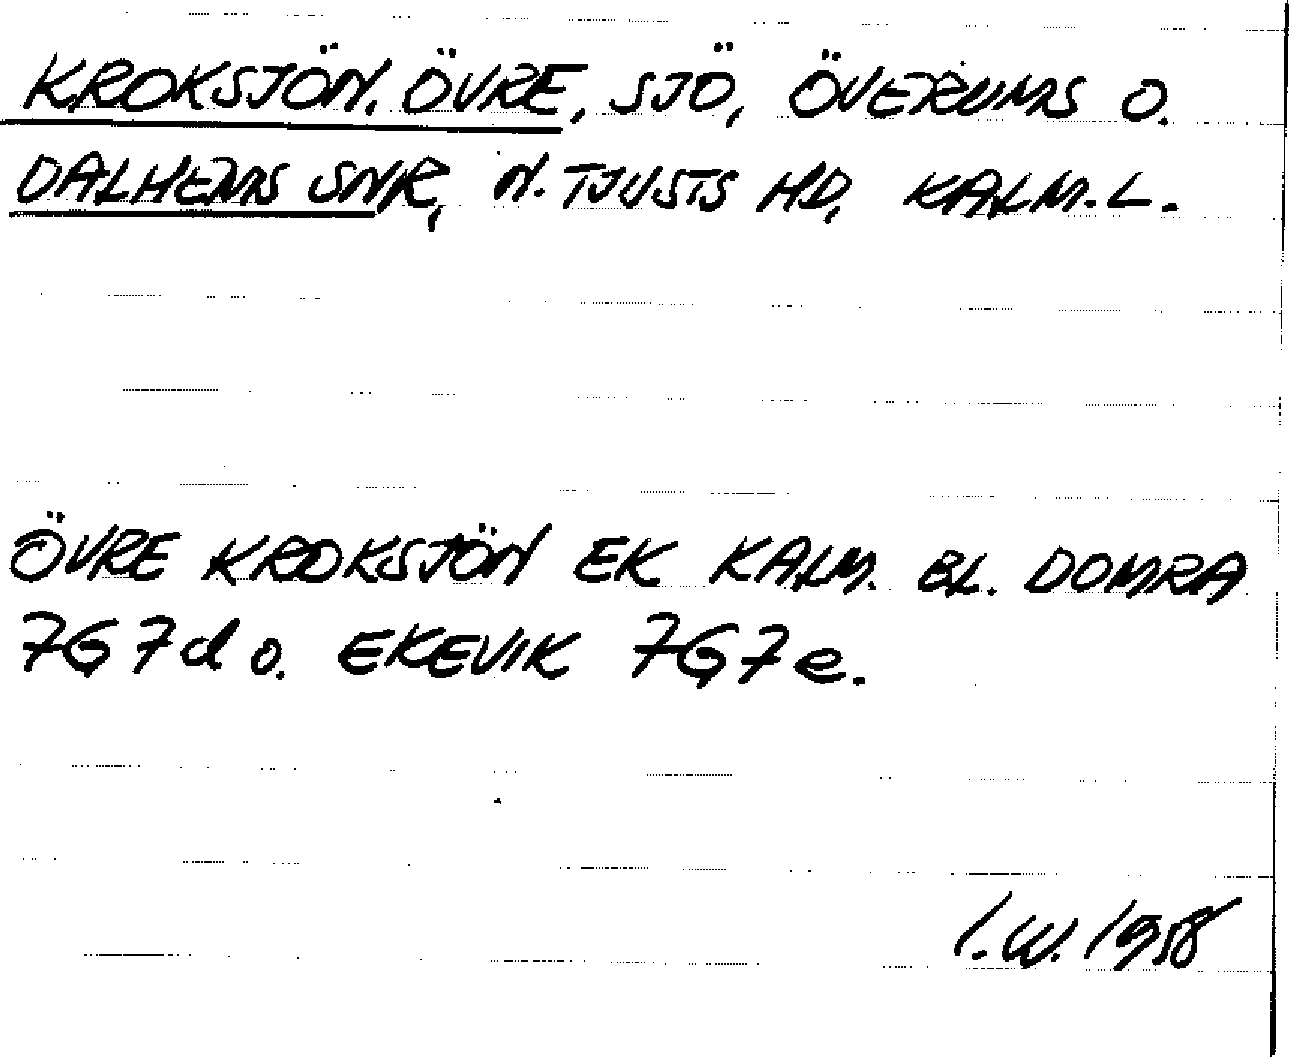 KROKSJÖN, ÖVRE, SJÖ, ÖVERUMS O.
DALHEMS SNR, N. TJUSTS HD, KALM. L.
ÖVRE KROKSJÖN EK KALM. BL. DOMRA
7G7d o. EKEVIK 7G7e.
I.W. 1958